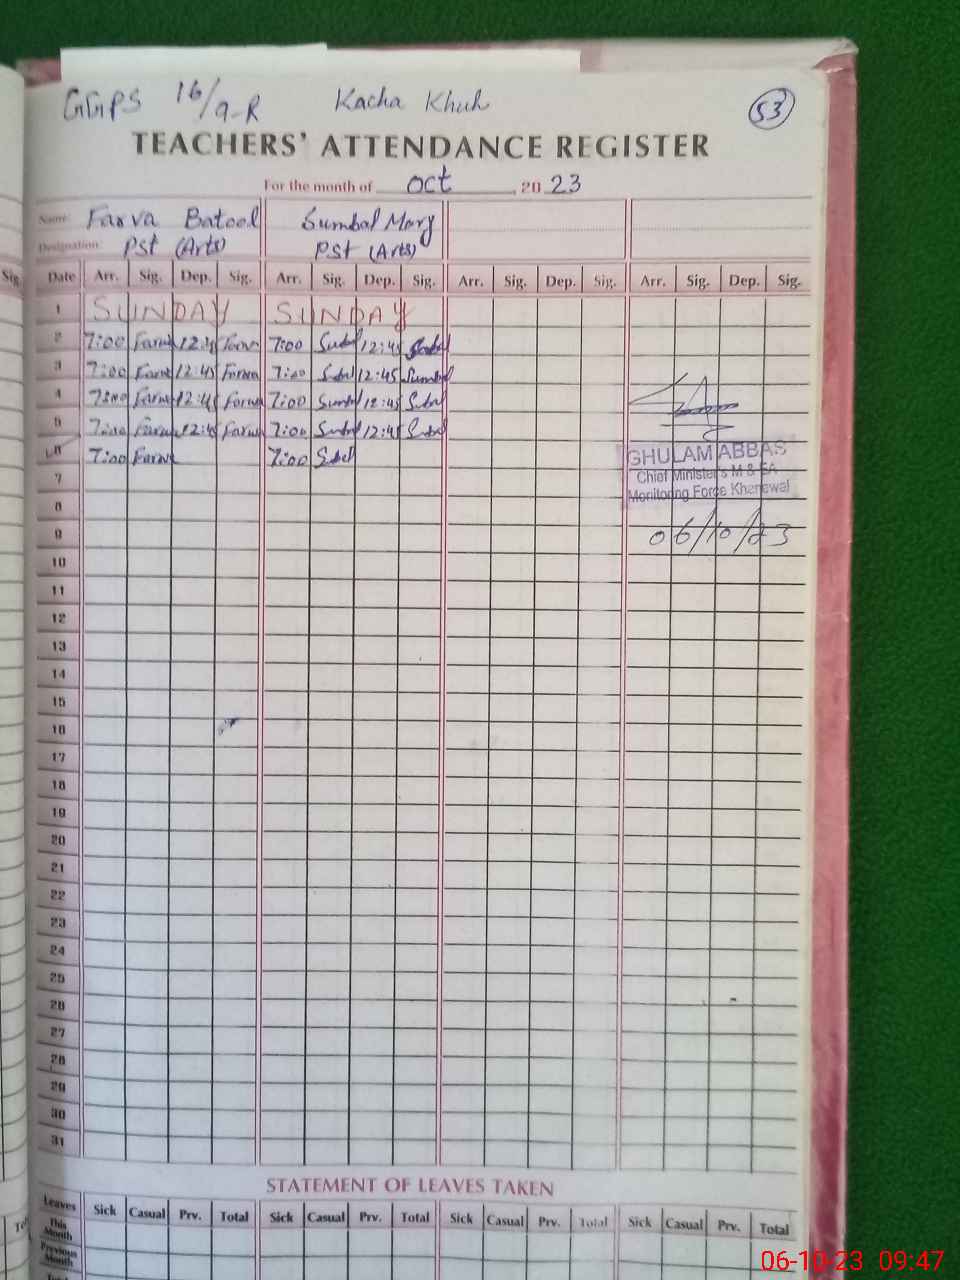 GGPS 16/9-R Kacha Khuh 53
TEACHERS' ATTENDANCE REGISTER
For the month of Oct 2023
Name: Farva Batool Sumbal Mary
Designation: PST (Arts) PST (Arts)
Sig. Date Arr. Sig. Dep. Sig. Arr. Sig. Dep. Sig. Arr. Sig. Dep. Sig. Arr. Sig. Dep. Sig.
1 SUNDAY SUNDAY
2 7:00 Farwa 12:45 Farwa 7:00 12:45
3 7:00 Farwa 12:45 Farwa 7:00 12:45 Sumbal
4 7:00 Farwa 12:45 Farwa 7:00 Sumbal 12:45
5 7:00 Farwa 12:45 Farwa 7:00 Sumbal 12:45
6 7:00 Farwa 7:00
GHULAM ABBAS
Chief Minister's M & EA
Monitoring Force Khanewal
06/10/23
7
8
9
10
11
12
13
14
15
16
17
18
19
20
21
22
23
24
25
26
27
28
29
30
31
STATEMENT OF LEAVES TAKEN
Leaves Sick Casual Prv. Total Sick Casual Prv. Total Sick Casual Prv. Total Sick Casual Prv. Total
This Month
Previous Month
06-10-23 09:47